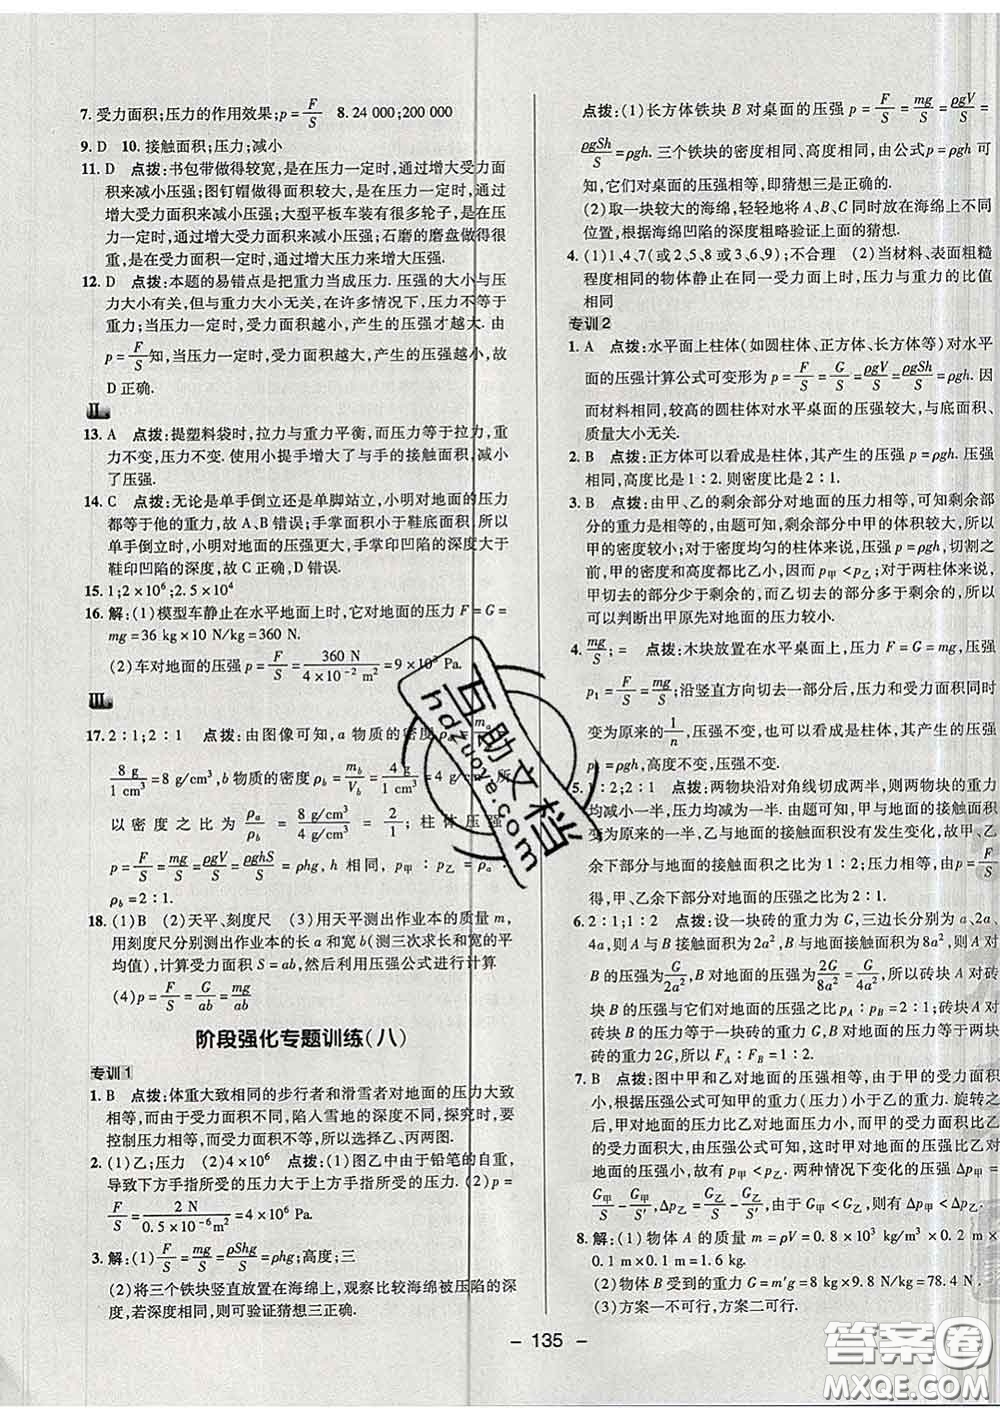 7. 受力面积;压力的作用效果;p=F/S  8. 24 000;200 000
9. D  10. 接触面积;压力;减小
11. D  点拨:书包带做得较宽,是在压力一定时,通过增大受力面
积来减小压强;图钉帽做得面积较大,是在压力一定时,通过
增大受力面积来减小压强;大型平板车装有很多轮子,是在
压力一定时,通过增大受力面积来减小压强;石磨的磨盘做得很
重,是在受力面积一定时,通过增大压力来增大压强.
12. D  点拨:本题的易错点是把重力当成压力. 压强的大小与压
力大小有关,但与重力大小无关,在许多情况下,压力不等于
重力;当压力一定时,受力面积越小,产生的压强才越大. 由
p=F/S知,当压力一定时,受力面积越大,产生的压强越小,故
D正确.
Ⅱ
13. A  点拨:提塑料袋时,拉力与重力平衡,而压力等于拉力,重
力不变,压力不变. 使用小提手增大了与手的接触面积,减小
了压强.
14. C  点拨:无论是单手倒立还是单脚站立,小明对地面的压力
都等于他的重力,故A、B错误;手掌面积小于鞋底面积,所以
单手倒立时,小明对地面的压强更大,手掌印凹陷的深度大于
鞋印凹陷的深度,故C正确,D错误.
15. 1;2×10⁶;2.5×10⁴
16. 解:(1)模型车静止在水平地面上时,它对地面的压力F=G=
mg=36 kg×10 N/kg=360 N.
(2)车对地面的压强p=F/S=360 N/(4×10⁻² m²)=9×10³ Pa.
Ⅲ
17. 2∶1;2∶1  点拨:由图像可知,a物质的密度
8 g/1 cm³=8 g/cm³,b物质的密度ρb=mb/Vb=4 g/1 cm³=4 g/cm³,所
以密度之比为ρa/ρb=(8 g/cm³)/(4 g/cm³)=2/1;柱体压强
p=F/S=mg/S=ρgV/S=ρghS/S=ρhg,h相同,p甲∶p乙=ρa∶
ρb=2∶1.
18. (1)B  (2)天平、刻度尺  (3)用天平测出作业本的质量m,
用刻度尺分别测出作业本的长a和宽b(测三次求长和宽的平
均值),计算受力面积S=ab,然后利用压强公式进行计算
(4)p=F/S=G/ab=mg/ab
阶段强化专题训练(八)
专训1
1. B  点拨:体重大致相同的步行者和滑雪者对地面的压力大致
相等,而由于受力面积不同,陷入雪地的深度不同,探究时,要
控制压力相等,而受力面积不等,所以选择乙、丙两图.
2. (1)乙;压力  (2)4×10⁶  点拨:(1)图乙中由于铅笔的自重,
导致下方手指所受的压力大于上方手指所受的压力. (2)p=
F/S=2 N/(0.5×10⁻⁶m²)=4×10⁶ Pa.
3. 解:(1)F/S=mg/S=ρShg/S=ρhg;高度;三
(2)将三个铁块竖直放置在海绵上,观察比较海绵被压陷的深
度,若深度相同,则可验证猜想三正确.
点拨:(1)长方体铁块B对桌面的压强p=F/S=mg/S=ρgV/S=
ρgSh/S=ρgh. 三个铁块的密度相同、高度相同,由公式p=ρgh可
知,它们对桌面的压强相等,即猜想三是正确的.
(2)取一块较大的海绵,轻轻地将A、B、C同时放在海绵上不同
位置,用海绵凹陷的深度粗略验证上面的猜想.
4. (1)1,4,7(或2,5,8或3,6,9);不合理  (2)当材料、表面粗糙
程度相同的物体静止在同一受力面上时,压力与重力的比值
相同
专训2
1. A  点拨:水平面上柱体(如圆柱体、正方体、长方体等)对水平
面的压强计算公式可变形为p=F/S=G/S=ρgV/S=ρgSh/S=ρgh. 因
而材料相同,较高的圆柱体对水平桌面的压强较大,与底面积、
质量大小无关.
2. B  点拨:正方体可以看成是柱体,其产生的压强p=ρgh. 压强
相同,高度比是1∶2. 则密度比是2∶1.
3. B  点拨:由甲、乙的剩余部分对地面的压力相等,可知剩余部
分的重力是相等的,由题可知,剩余部分中甲的体积较大,所以
甲的密度较小;对于密度均匀的柱体来说,压强p=ρgh,切割之
前,甲的高度和密度都比乙小,因此p甲<p乙;对于两柱体来说,
甲切去的部分少于剩余的部分,而乙切去的部分多于剩余的部
分,可判断出甲原先对地面的压力较小.
4. mg/S;=  点拨:木块放置在水平桌面上,压力F=G=mg,压强
p₁=F/S=mg/S;沿竖直方向切去一部分后,压力和受力面积同时
变为原来的1/n,压强不变,也可以看成是柱体,其产生的压强
p=ρgh,高度不变,压强不变.
5. 1∶2;2∶1  点拨:两物块沿对角线切成两半,则两物块的重力
均减小一半,压力均减为一半. 甲与地面的接触面积
变为原来的一半,乙与地面的接触面积没有发生变化,故甲、乙
余下部分与地面的接触面积之比为1∶2;压力相等,由p=F/S
得,甲、乙余下部分对地面的压强之比为2∶1.
6. 2∶1;1∶2  点拨:设一块砖的重力为G,三边长分别为a、2a、
4a,则A与B接触面积为2a²,B与地面接触面积为8a²,则A对
B的压强为G/2a²,B对地面的压强为2G/8a²=G/4a²,所以砖块A对砖块
B的压强与它们对地面的压强之比pA∶pB=2∶1;砖块A对
砖块B的压力等于一块砖的重力G,B对地面的压力等于两块
砖的重力2G,所以FA∶FB=1∶2.
7. B  点拨:图中甲和乙对地面的压强相等,由于甲的受力面积
小,根据压强公式可知甲的重力(压力)小于乙的重力. 旋转之
后,甲对地面的压力比乙对地面压力小,而甲的受力面积比乙
的受力面积大,由压强公式可知,这时甲对地面的压强比乙对
地面的压强小,故p甲<p乙. 两种情况下变化的压强Δp甲=
G甲/S-G甲/S′,Δp乙=G乙/S-G乙/S′,由于G甲<G乙,则有Δp甲<Δp乙.
8. 解:(1)物体A的质量m=ρV=0.8×10³ kg/m³×0.2 m
×0.1 m×0.1 m=1.6 kg.
(2)物体B受到的重力G=m′g=8 kg×9.8 N/kg=78.4 N.
(3)方案一不可行,方案二可行.
- 135 -
互助文档
hdzuoye.com
答案圈
MXQE.COM